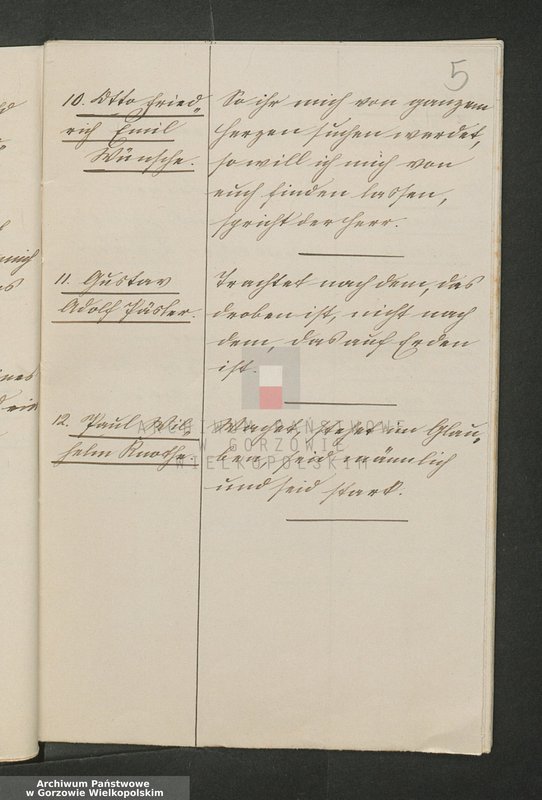 5
10. Otto Fried„
rich Emil
Wünsche.
So ihr mich von ganzem
Herzen suchen werdet,
so will ich mich von
euch finden lassen,
spricht der Herr.
11. Gustav
Adolf
Trachtet nach dem, das
droben ist, nicht nach
dem, das auf Erden
ist.
12. Paul Wil„
helm Knothe
Wachet, stehet im Glau„
ben, seid männlich
und seid stark.
ARCHIWUM PAŃSTWOWE
W GORZOWIE
WIELKOPOLSKIM
Archiwum Państwowe
w Gorzowie Wielkopolskim